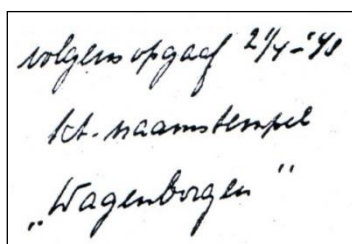 volgens opgaaf 21/4-'48
kt. naamstempel
„Wagenborgen"